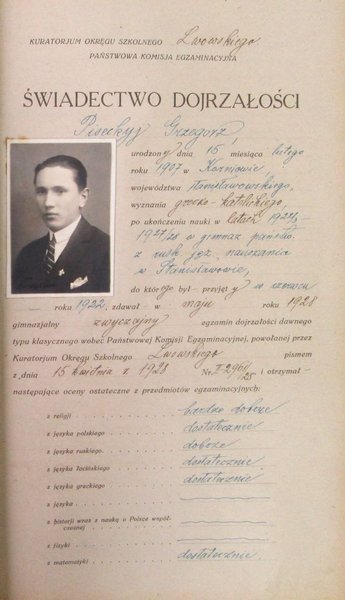 KURATORJUM OKRĘGU SZKOLNEGO Lwowskiego
PAŃSTWOWA KOMISJA EGZAMINACYJNA
ŚWIADECTWO DOJRZAŁOŚCI
Piseckyj Grzegorz,
urodzony dnia 15 miesiąca lutego
roku 1907 w Korniowie
województwa stanisławowskiego,
wyznania grecko-katolickiego,
po ukończeniu nauki w latach 1922/3
1927/28 w gimnaz. państw.
z rusk. jęz. nauczania
w Stanisławowie,
do którego był przyjęty w czerwcu
roku 1922 zdawał w maju roku 1928
gimnazjalny zwyczajny egzamin dojrzałości dawnego
typu klasycznego wobec Państwowej Komisji Egzaminacyjnej, powołanej przez
Kuratorjum Okręgu Szkolnego Lwowskiego pismem
z dnia 15 kwietnia r. 1928 Nr. i otrzymał
następujące oceny ostateczne z przedmiotów egzaminacyjnych:
z religji bardzo dobrze
z języka polskiego dostatecznie
z języka ruskiego dobrze
z języka łacińskiego dostatecznie
z języka greckiego dostatecznie
z języka
z historji wraz z nauką o Polsce współ-
czesnej
z fizyki
z matematyki dostatecznie